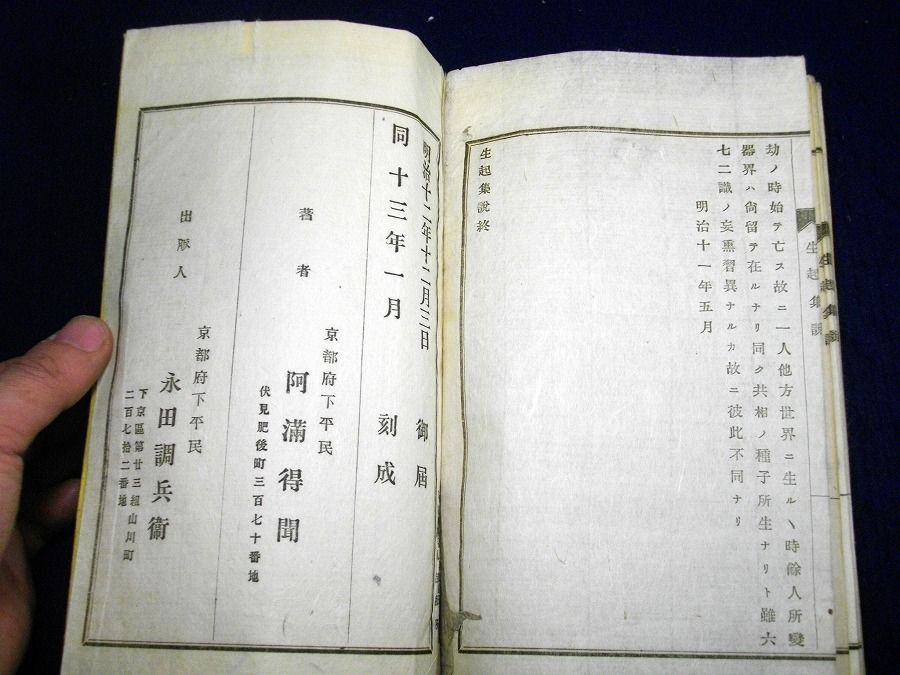 生起集説
劫ノ時始テ亡ス故ニ一人他方世界ニ生ルヽ時餘人所變
器界ハ尙留テ在ルナリ同ク共相ノ種子所生ナリト雖六
七二識ノ妄熏習異ナルカ故ニ彼此不同ナリ
明治十一年五月
生起集説終
明治十二年十二月三日 御届
同十三年一月 刻成
著者
京都府下平民
阿滿得聞
伏見肥後町三百七十番地
出版人
京都府下平民
永田調兵衞
下京區第廿三組山川町
二百七拾二番地